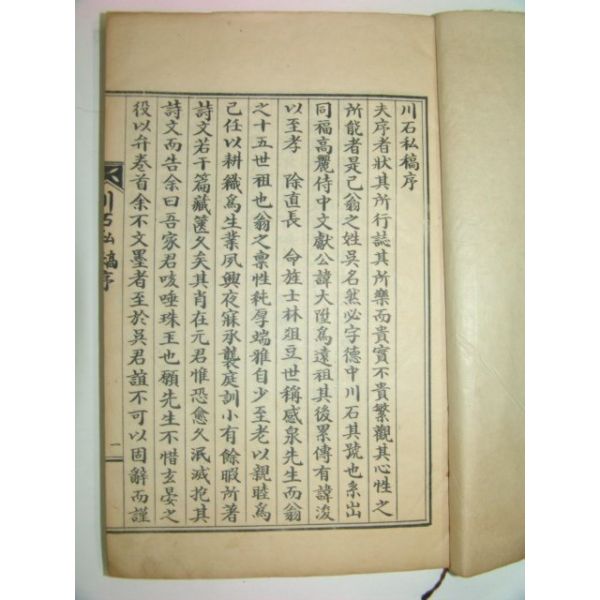 川石私稿序
夫序者狀其所行誌其所樂而貴實不貴繁觀其心性之
所能者是已翁之姓吳名然必字德中川石其號也系出
同福高麗侍中文獻公諱大陞爲遠祖其後累傳有諱浚
以至孝 除直長 命旌士林俎豆世稱感泉先生而翁
之十五世祖也翁之禀性純厚端雅自少至老以親睦爲
己任以耕織爲生業夙興夜寐承襲庭訓小有餘暇所著
詩文若干篇藏篋久矣其肖在元君惟恐愈久泯滅抱其
詩文而告余曰吾家君咳唾珠玉也願先生不惜玄晏之
役以弁卷首余不文墨者至於吳君誼不可以固辭而謹
川石私稿序
一